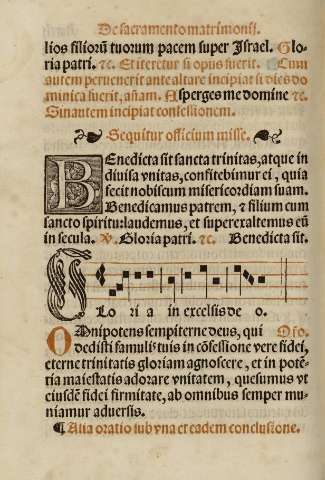 De sacramento matrimonij.
lios filiorũ tuorum pacem super Jsrael. Glo
ria patri. ⁊c. Et iteretur si opus fuerit. Cum
autem peruenerit ante altare incipiat si dies do
minica fuerit, añam. Asperges me domine ⁊c.
Sinautem incipiat confessionem.
Sequitur officium misse.
BEnedicta sit sancta trinitas, atque in
diuisa vnitas, confitebimur ei, quia
fecit nobiscum misericordiam suam.
Benedicamus patrem, et filium cum
sancto spiritu: laudemus, et superexaltemus eum
in secula. ℣. Gloria patri. ⁊c. Benedicta sit.
GLo ria in excelsis de o.
OMnipotens sempiterne deus, qui Ořo.
dedisti famulis tuis in cõfessione vere fidei,
eterne trinitatis gloriam agnoscere, et in potẽ
ria maiestatis adorare vnitatem, quesumus vt
eiusdẽ fidei firmitate, ab omnibus semper mu
niamur aduersis.
¶ Alia oratio sub vna et eadem conclusione.